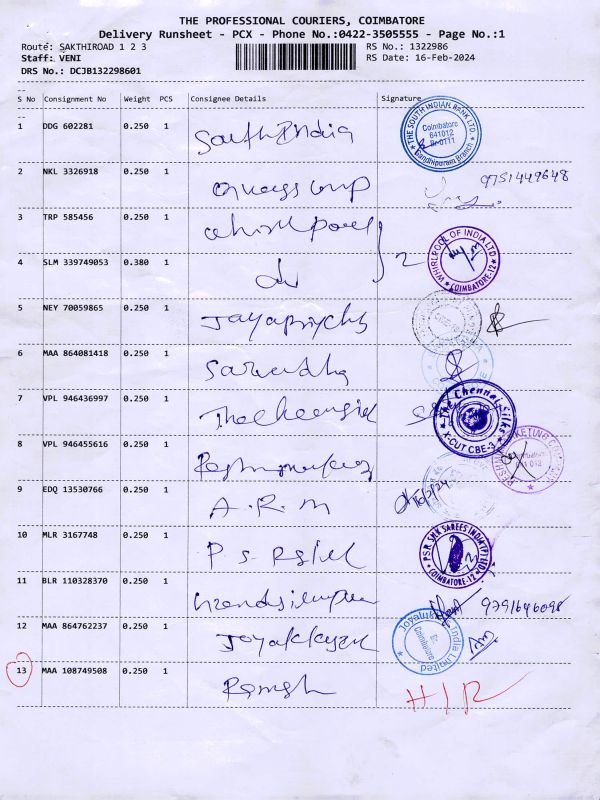 THE PROFESSIONAL COURIERS, COIMBATORE
Delivery Runsheet - PCX - Phone No.:0422-3505555 - Page No.:1
Route: SAKTHIROAD 1 2 3 RS No.: 1322986
Staff: VENI RS Date: 16-Feb-2024
DRS No.: DCJB132298601
--
S No Consignment No Weight PCS Consignee Details Signature
--
1 DDG 602281 0.250 1 South India THE SOUTH INDIAN BANK LTD. Coimbatore 641012 Br-0711 Gandhipuram Branch
2 NKL 3326918 0.250 1 9751449648
3 TRP 585456 0.250 1 whirlpool
4 SLM 339749053 0.380 1 do 2 WHIRLPOOL OF INDIA LTD COIMBATORE-12
5 NEY 70059865 0.250 1
6 MAA 864081418 0.250 1
7 VPL 946436997 0.250 1 The Chennai Silks X-CUT CBE-3
8 VPL 946455616 0.250 1
9 EDQ 13530766 0.250 1 A.R.M
10 MLR 3167748 0.250 1 P S R Silk P.S.R. SILK SAREES INDIA (P) LTD. COIMBATORE-12
11 BLR 110328370 0.250 1 9791646098
12 MAA 864762237 0.250 1 India Limited Coimbatore
13 MAA 108749508 0.250 1 Ramesh H/R